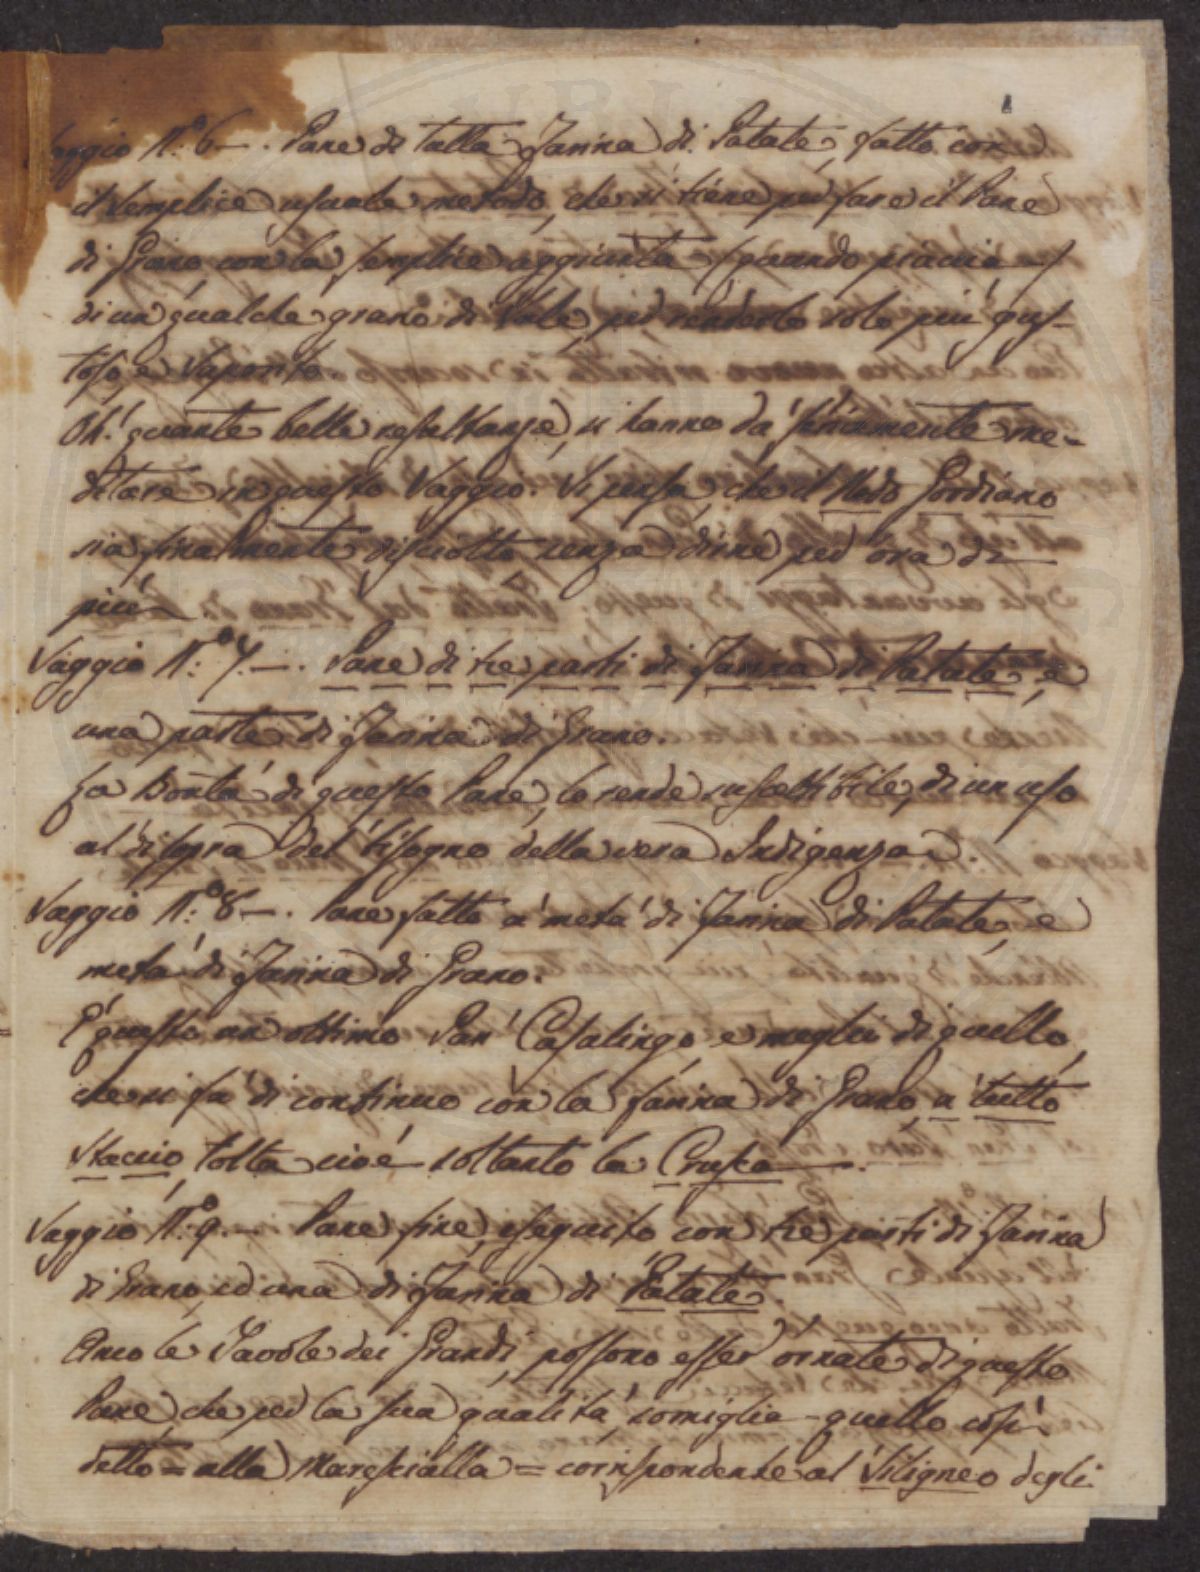 Saggio N.º 6 —. Pane di tutta Farina di Patate, fatto con
il semplice usuale metodo, che si tiene per fare il Pane
di Grano con la semplice aggiunta (quando piaccia)
di un qualche grano di sale, per renderlo solo piu' gus-
toso, e saporito.
Oh! quante belle resultanze, si hanno dá seriamente me-
ditare in questo Saggio. Si pensa, che il Nodo Gordiano
sia finalmente disciolto senza dirne per ora di
piú —
Saggio N.º 7. —. Pane di tre parti di Farina di Patate, e
una parte di Farina di Grano.
La Bontá di questo Pane, lo rende suscettibile, di un uso
al disopra del bisogno della vera Indigenza.
Saggio N.º 8 —. Pane fatto a metá di Farina di Patate, e
metá di Farina di Grano.
É questo un ottimo Pan' Casalingo e meglio di quello,
che si fá di continuo con la farina di Grano, a tutto
Staccio, tolta cioé soltanto la Crusca —.
Saggio N.º 9. — Pane fine, eseguito con tre parti di Farina
di Grano, ed una di Farina di Patate.
Anco le Tavole dei Grandi, possono esser ornate di questo
Pane, che per la sua qualitá, somiglia quello cosí
detto = alla Marescialla = corrispondente al Siligneo degli